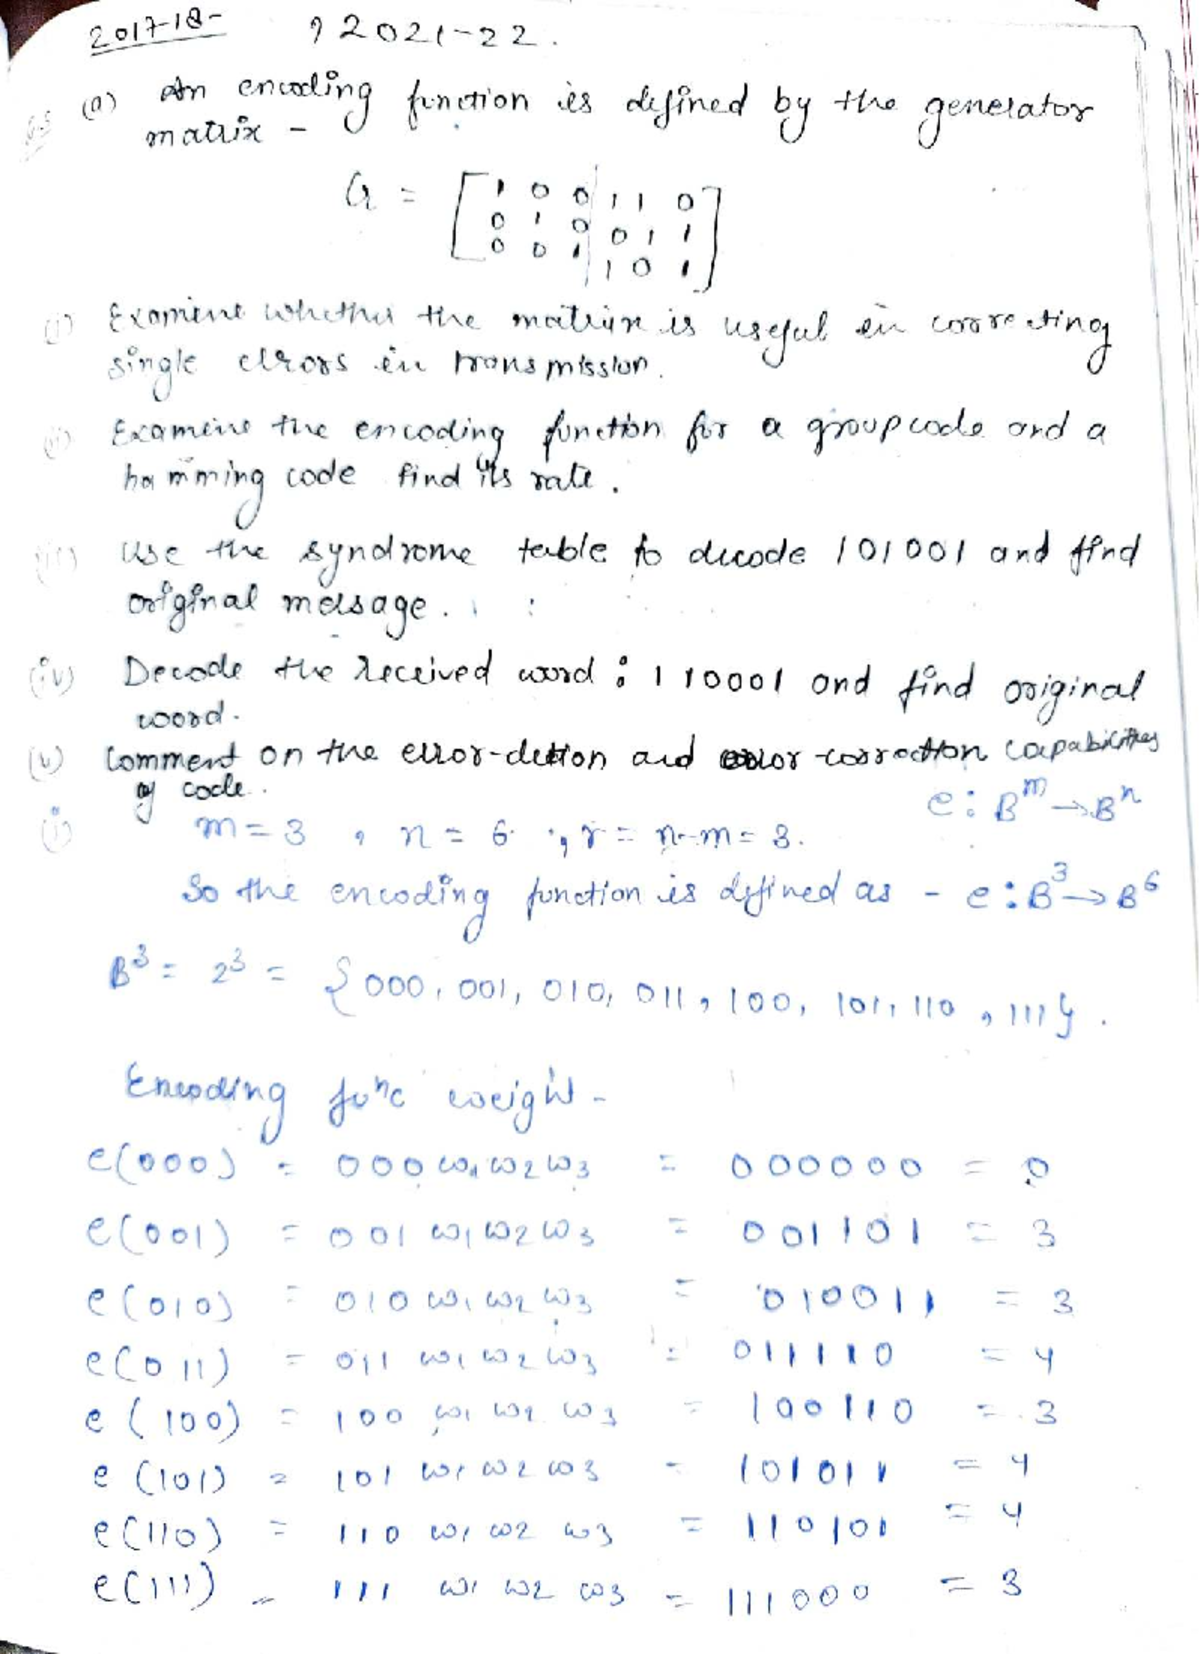 2017-18- , 2021-22.
(a) An encoding function is defined by the generator
matrix -
G = [ 1 0 0 1 1 0
0 1 0 0 1 1
0 0 1 1 0 1 ]
(i) Examine whether the matrix is useful in correcting
single errors in transmission.
(ii) Examine the encoding function for a group code and a
hamming code find its rate.
(iii) Use the syndrome table to decode 101001 and find
original message.
(iv) Decode the received word : 110001 and find original
word.
(v) Comment on the error-dettion and error-correction capabilities
of code.
e: B^m → B^n
(i) m = 3 , n = 6 , r = n-m = 3.
So the encoding function is defined as - e : B^3 → B^6
B^3 = 2^3 = {000, 001, 010, 011, 100, 101, 110, 111}.
Encoding func weight -
e(000) = 000 w1 w2 w3 = 000000 = 0
e(001) = 001 w1 w2 w3 = 001101 = 3
e(010) = 010 w1 w2 w3 = 010011 = 3
e(011) = 011 w1 w2 w3 = 011110 = 4
e(100) = 100 w1 w2 w3 = 100110 = 3
e(101) = 101 w1 w2 w3 = 101011 = 4
e(110) = 110 w1 w2 w3 = 110101 = 4
e(111) = 111 w1 w2 w3 = 111000 = 3